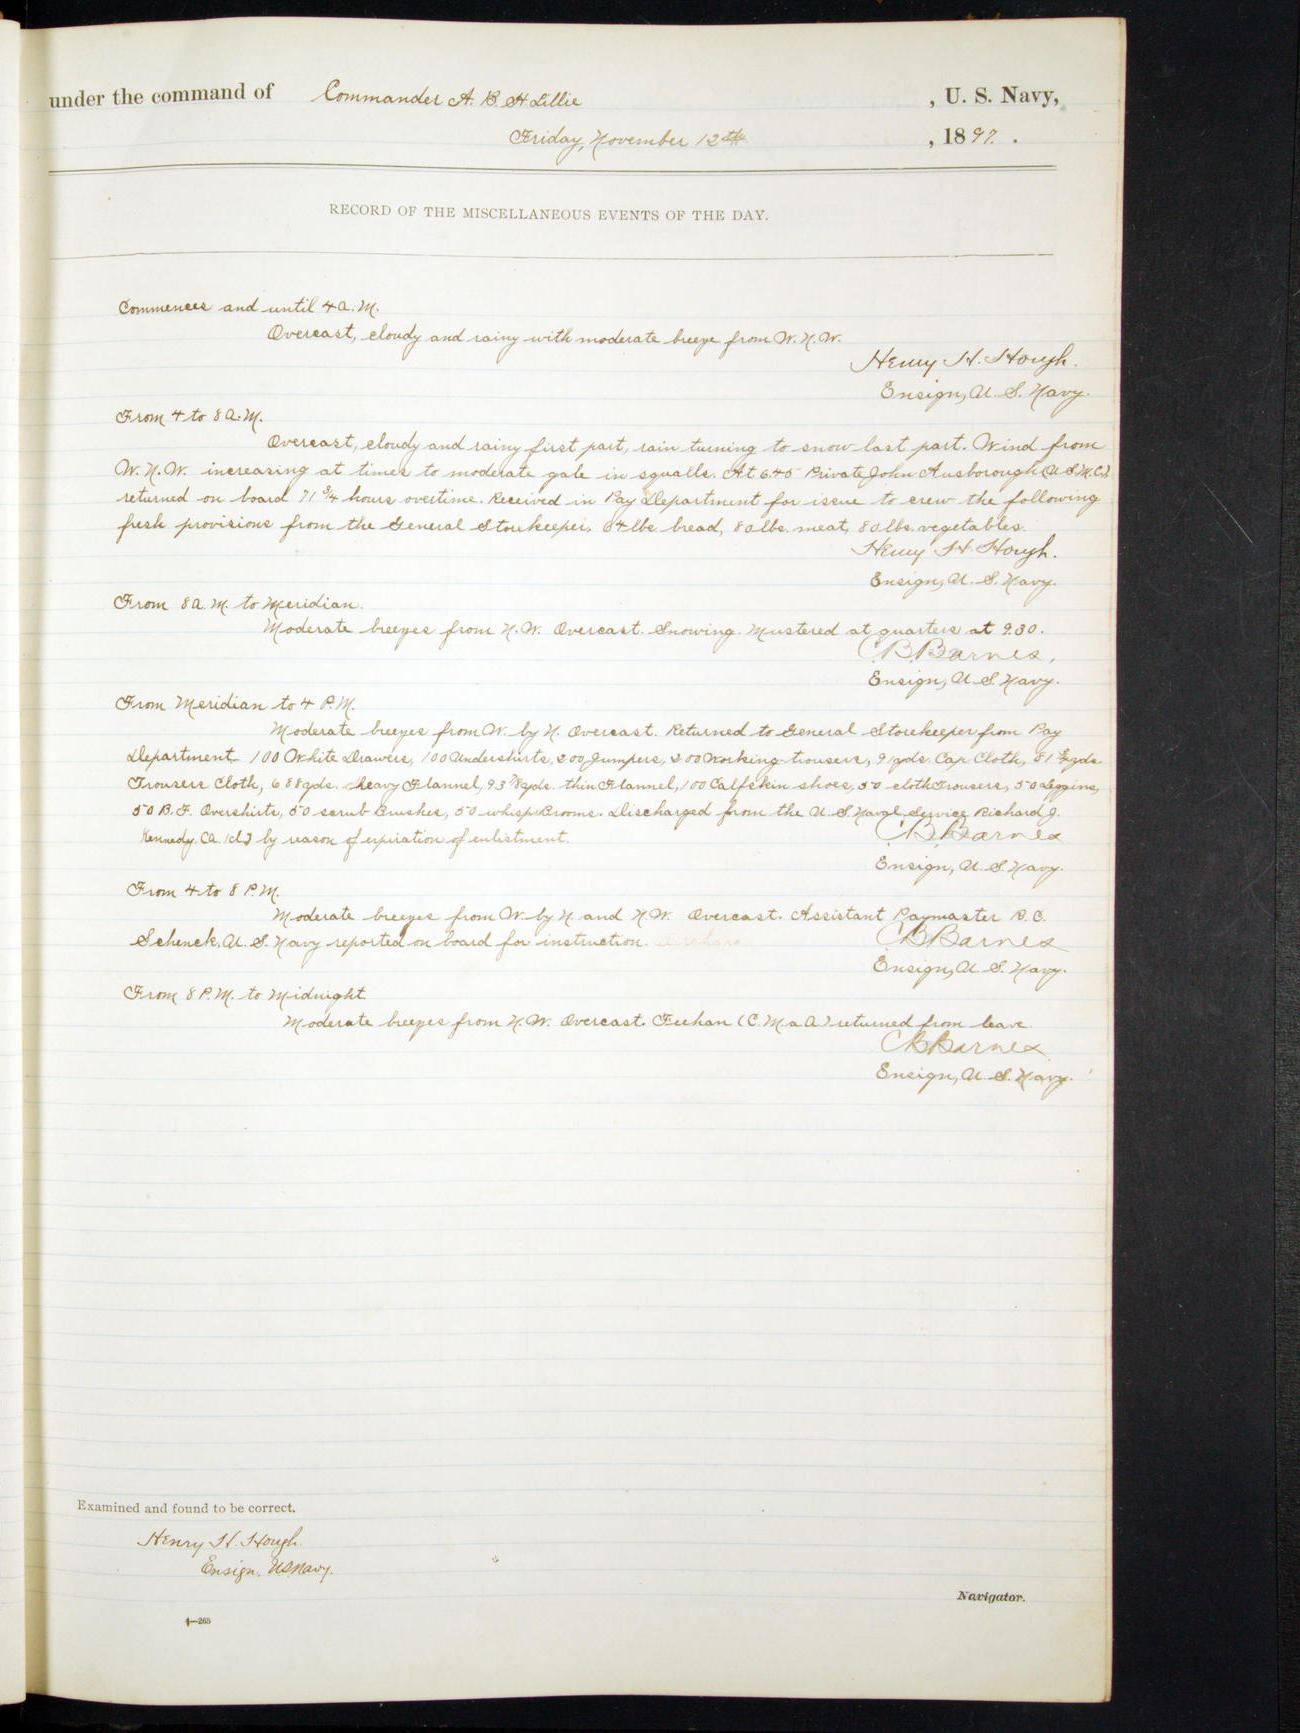 under the command of Commander A. B. H. Lillie, U. S. Navy,
Friday, November 12th, 1897.
RECORD OF THE MISCELLANEOUS EVENTS OF THE DAY.
Commences and until 4 A.M.
Overcast, cloudy and rainy with moderate breeze from W.N.W.
Henry H. Hough.
Ensign, U. S. Navy.
From 4 to 8 A.M.
Overcast, cloudy and rainy first part, rain turning to snow last part. Wind from
W.N.W. increasing at times to moderate gale in squalls. At 6.45 Private John Ausborough (U.S.M.C.)
returned on board 71 3/4 hours overtime. Received in Pay Department for issue to crew the following
fresh provisions from the General Storekeeper, 64 lbs. bread, 80 lbs. meat, 80 lbs. vegetables.
Henry H. Hough.
Ensign, U. S. Navy.
From 8 A.M. to Meridian.
Moderate breezes from N.W. Overcast. Snowing. Mustered at quarters at 9.30.
C B Barnes.
Ensign, U. S. Navy.
From Meridian to 4 P.M.
Moderate breezes from W. by N. Overcast. Returned to General Storekeeper from Pay
Department 100 White Drawers, 100 Undershirts, 200 Jumpers, 200 Working trousers, 91 yds. Cap Cloth, yds.
Trousers Cloth, 688 yds. heavy Flannel, 93 7/8 yds. thin Flannel, 100 Calfskin shoes, 50 cloth Trousers, 50 Leggins,
50 B.F. Overshirts, 50 scrub Brushes, 50 whisp Brooms. Discharged from the U.S. Naval Service Richard J.
Kennedy by reason of expiration of enlistment.
C B Barnes
Ensign, U. S. Navy.
From 4 to 8 P.M.
Moderate breezes from W. by N. and N.W. Overcast. Assistant Paymaster R. C.
Schenck, U. S. Navy reported on board for instruction.
C B Barnes
Ensign, U. S. Navy.
From 8 P.M. to Midnight
Moderate breezes from N.W. Overcast. Feehan (C.M.a.A.) returned from leave.
C B Barnes
Ensign, U. S. Navy.
Examined and found to be correct.
Henry H. Hough.
Ensign. U.S. Navy.
Navigator.
4—265